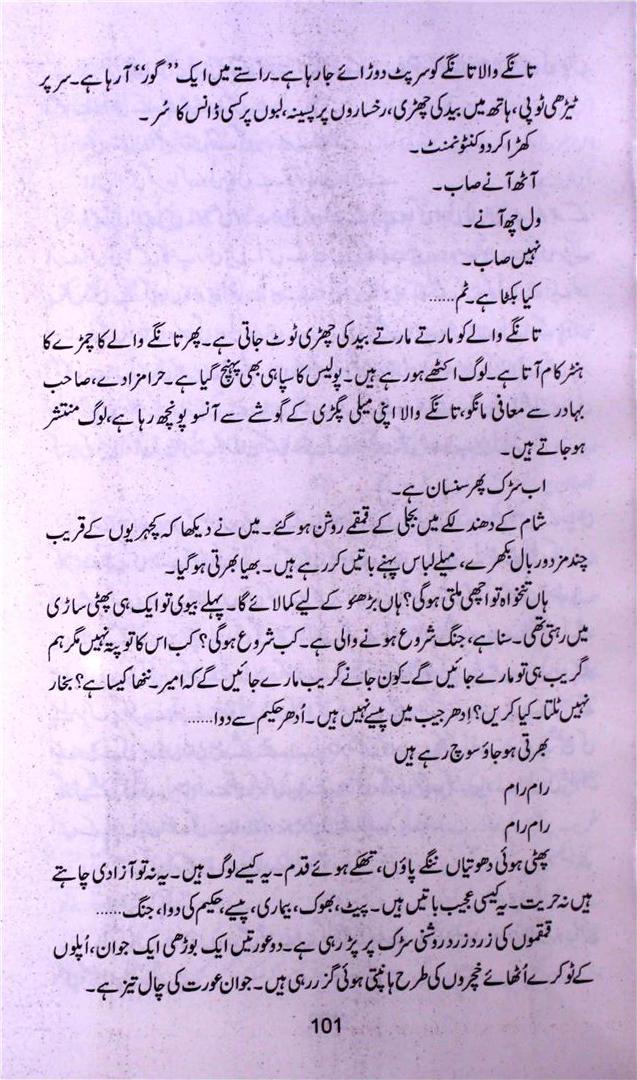 تانگے والا تانگے کو سرپٹ دوڑائے جارہا ہے۔ راستے میں ایک ”گور“ آرہا ہے۔ سر پر
ٹیڑھی ٹوپی، ہاتھ میں بید کی چھڑی، رخساروں پر پسینہ، لبوں پر کسی ڈانس کا سُر۔
کھڑا کردو کنٹونمنٹ۔
آٹھ آنے صاب۔
ول چھ آنے۔
نہیں صاب۔
کیا بکٹا ہے۔ ٹم......
تانگے والے کو مارتے مارتے بید کی چھڑی ٹوٹ جاتی ہے۔ پھر تانگے والے کا چمڑے کا
ہنٹر کام آتا ہے۔ لوگ اکٹھے ہورہے ہیں۔ پولیس کا سپاہی بھی پہنچ گیا ہے۔ حرامزادے، صاحب
بہادر سے معافی مانگو، تانگے والا اپنی میلی پگڑی کے گوشے سے آنسو پونچھ رہا ہے، لوگ منتشر
ہوجاتے ہیں۔
اب سڑک پھر سنسان ہے۔
شام کے دھندلکے میں بجلی کے قمقمے روشن ہوگئے۔ میں نے دیکھا کہ کچہریوں کے قریب
چند مزدور بال بکھرے، میلے لباس پہنے باتیں کررہے ہیں۔ بھیا بھرتی ہوگیا۔
ہاں تنخواہ تو اچھی ملتی ہوگی؟ ہاں بڑھئو کے لیے کمالائے گا۔ پہلے بیوی تو ایک ہی پھٹی ساڑی
میں رہتی تھی۔ سنا ہے، جنگ شروع ہونے والی ہے۔ کب شروع ہوگی؟ کب اس کا تو پتہ نہیں مگر ہم
گریب ہی تو مارے جائیں گے۔ کون جانے گریب مارے جائیں گے کہ امیر۔ ننھا کیسا ہے؟ بخار
نہیں ٹلتا۔ کیا کریں؟ اِدھر جیب میں پیسے نہیں ہیں۔ اُدھر حکیم سے دوا......
بھرتی ہوجاؤ سوچ رہے ہیں
رام رام
رام رام
پھٹی ہوئی دھوتیاں ننگے پاؤں، تھکے ہوئے قدم۔ یہ کیسے لوگ ہیں۔ یہ نہ تو آزادی چاہتے
ہیں نہ حریت۔ یہ کیسی عجیب باتیں ہیں۔ پیٹ، بھوک، بیماری، پیسے، حکیم کی دوا، جنگ......
قمقموں کی زرد زرد روشنی سڑک پر پڑ رہی ہے۔ دو عورتیں ایک بوڑھی ایک جوان، اُپلوں
کے ٹوکرے اُٹھائے خچروں کی طرح ہانپتی ہوئی گزر رہی ہیں۔ جوان عورت کی چال تیز ہے۔
101